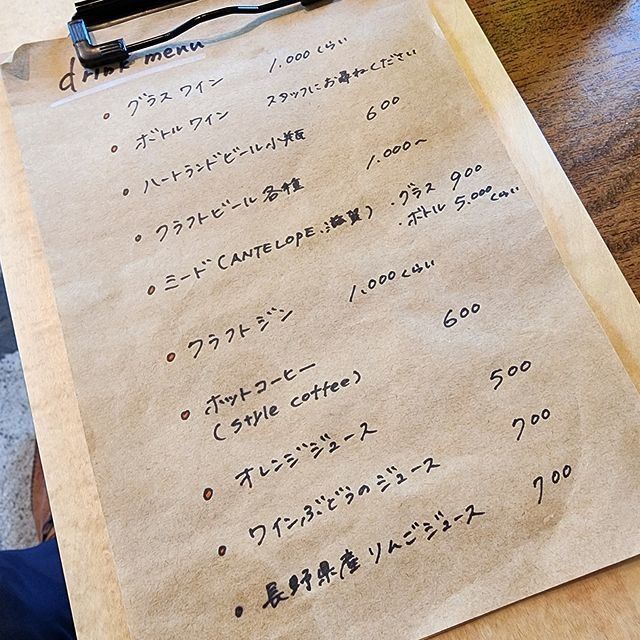 drink menu
グラスワイン 1.000くらい
ボトルワイン スタッフにお尋ねください
ハートランドビール小瓶 600
クラフトビール各種 1.000〜
ミード(ANTELOPE.滋賀) ・グラス 900
・ボトル 5.000くらい
クラフトジン 1.000くらい
ホットコーヒー 600
(style coffee)
オレンジジュース 500
ワインぶどうのジュース 700
長野県産りんごジュース 700